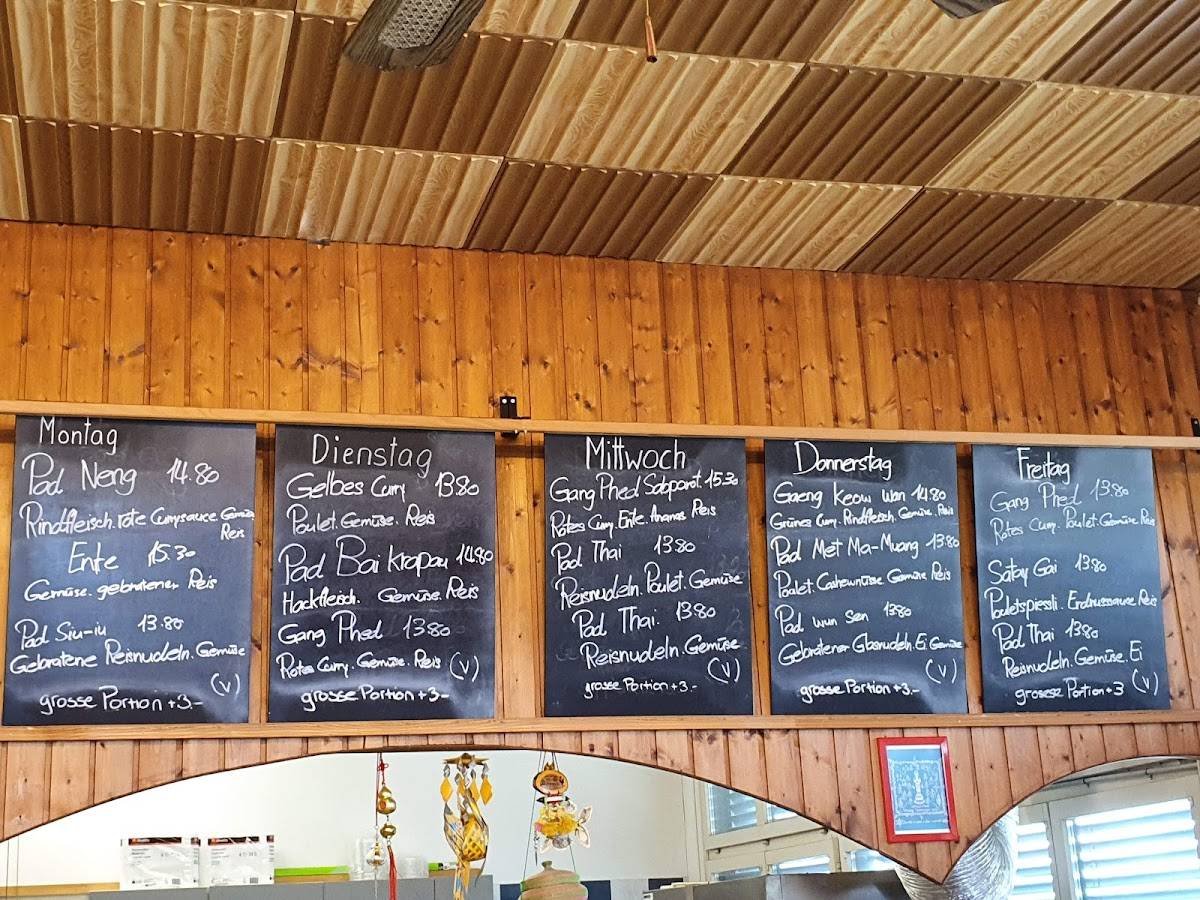 Montag
Pad Neng 14.80
Rindfleisch. rote Currysauce Gemüse
Reis
Ente 15.30
Gemüse. gebratener Reis
Pad Siu-iu 13.80
Gebratene Reisnudeln. Gemüse
(V)
grosse Portion +3.-
Dienstag
Gelbes Curry 13.80
Poulet. Gemüse. Reis
Pad Bai krapau 14.80
Hackfleisch. Gemüse. Reis
Gang Phed 13.80
Rotes Curry. Gemüse. Reis (V)
grosse Portion +3.-
Mittwoch
Gang Phed Saparot 15.30
Rotes Curry. Ente. Ananas Reis
Pad Thai 13.80
Reisnudeln. Poulet. Gemüse
Pad Thai. 13.80
Reisnudeln. Gemüse
(V)
grosse Portion +3.-
Donnerstag
Gaeng Keow Wan 14.80
Grünes Curry. Rindfleisch. Gemüse. Reis
Pad Met Ma-Muang 13.80
Poulet. Cashewnüsse Gemüse. Reis
Pad wun sen 13.80
Gebratener Glasnudeln. Ei. Gemüse
(V)
grosse Portion +3.-
Freitag
Gang Phed 13.80
Rotes Curry. Poulet. Gemüse Reis
Satay Gai 13.80
Pouletspiessli. Erdnusssauce. Reis
Pad Thai 13.80
Reisnudeln. Gemüse. Ei
grosese Portion +3 (V)